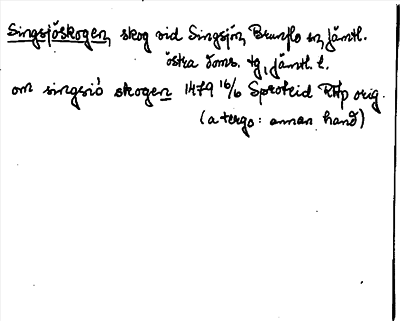 Singsjöskogen, skog vid Singsjön, Brunflo sn, Jämtl.
östra doms. tg, Jämtl. l.
om singsiö skogen 1479 16/6 Sproteid RAp orig.
(a tergo: annan hand)